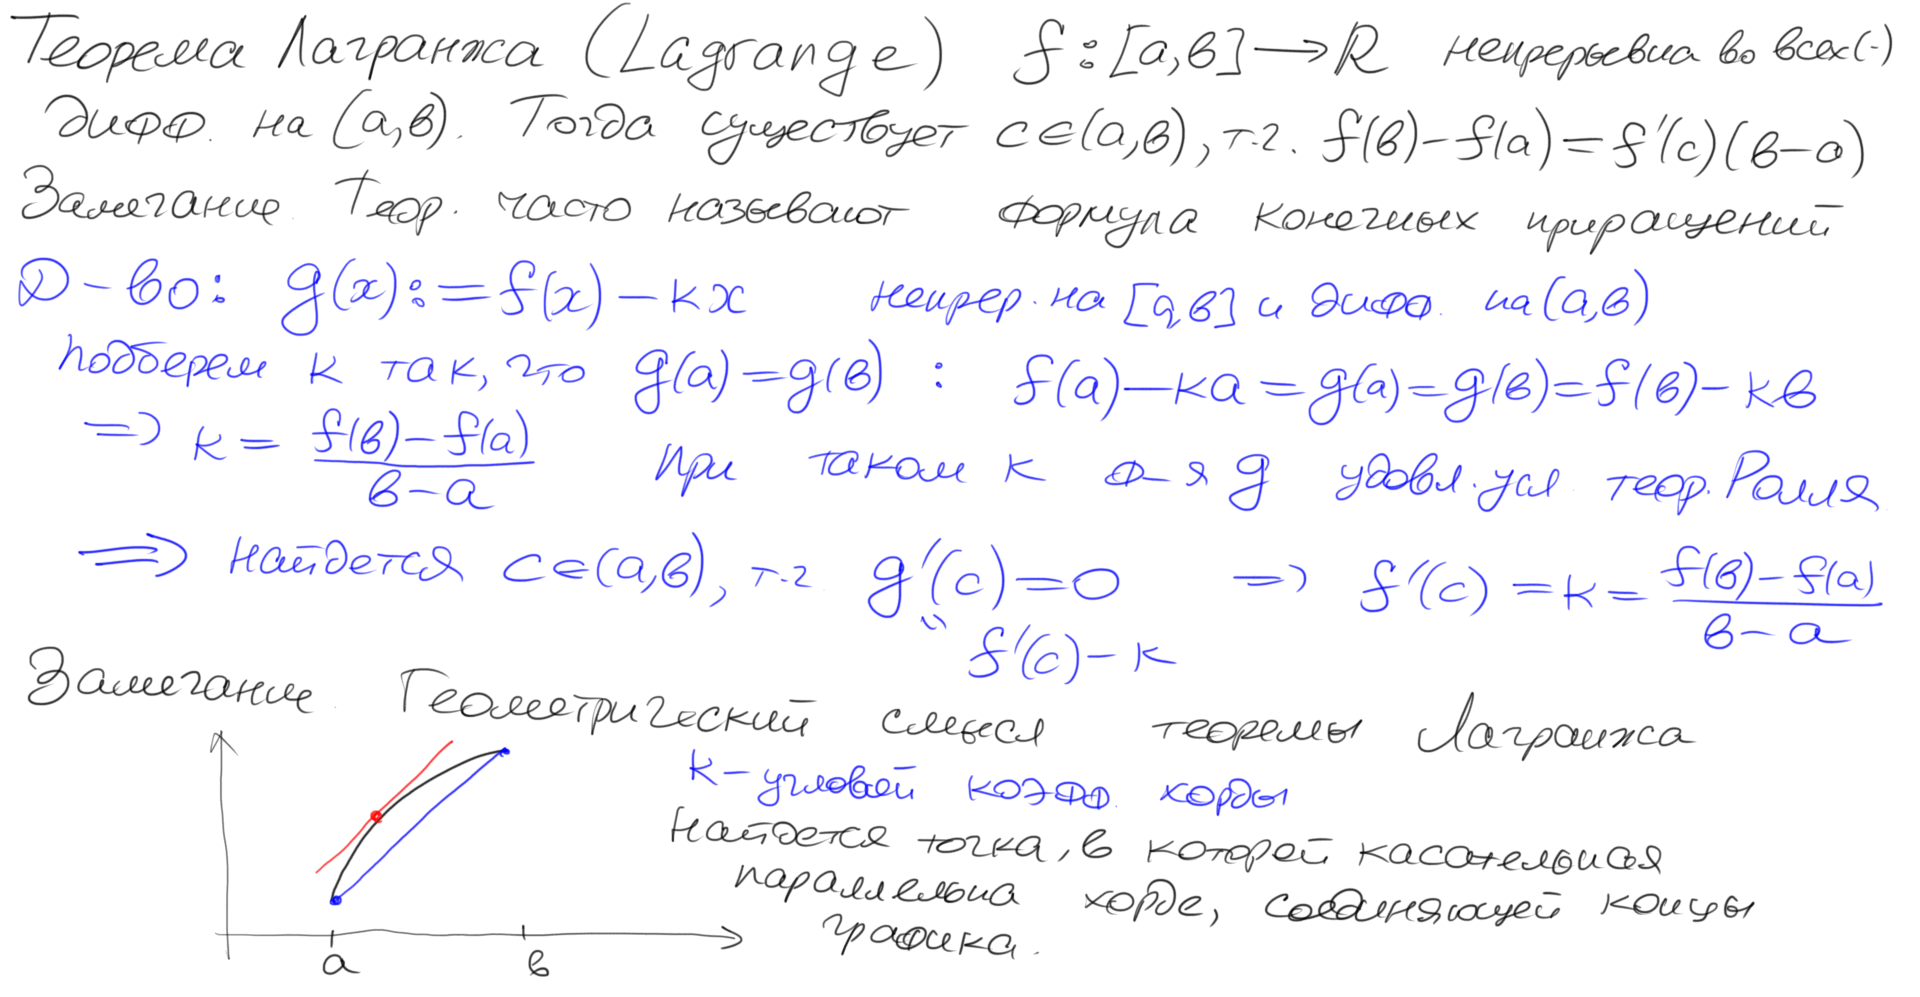 Теорема Лагранжа (Lagrange) f : [a,b] → R непрерывна во всех (·)
дифф. на (a,b). Тогда существует c ∈ (a,b), т.ч. f(b) − f(a) = f'(c)(b−a)
Замечание. Теор. часто называют формула конечных приращений
Д-во: g(x) := f(x) − kx непрер. на [a,b] и дифф. на (a,b)
подберем k так, что g(a) = g(b) : f(a) − ka = g(a) = g(b) = f(b) − kb
⇒ k = (f(b) − f(a))/(b − a) При таком k ф-я g удовл. усл. теор. Ролля
⇒ найдется c ∈ (a,b), т.ч. g'(c) = 0 ⇒ f'(c) = k = (f(b) − f(a))/(b − a)
"
f'(c) − k
Замечание. Геометрический смысл теоремы Лагранжа
k − угловой коэфф. хорды
Найдется точка, в которой касательная
параллельна хорде, соединяющей концы
графика.
a b